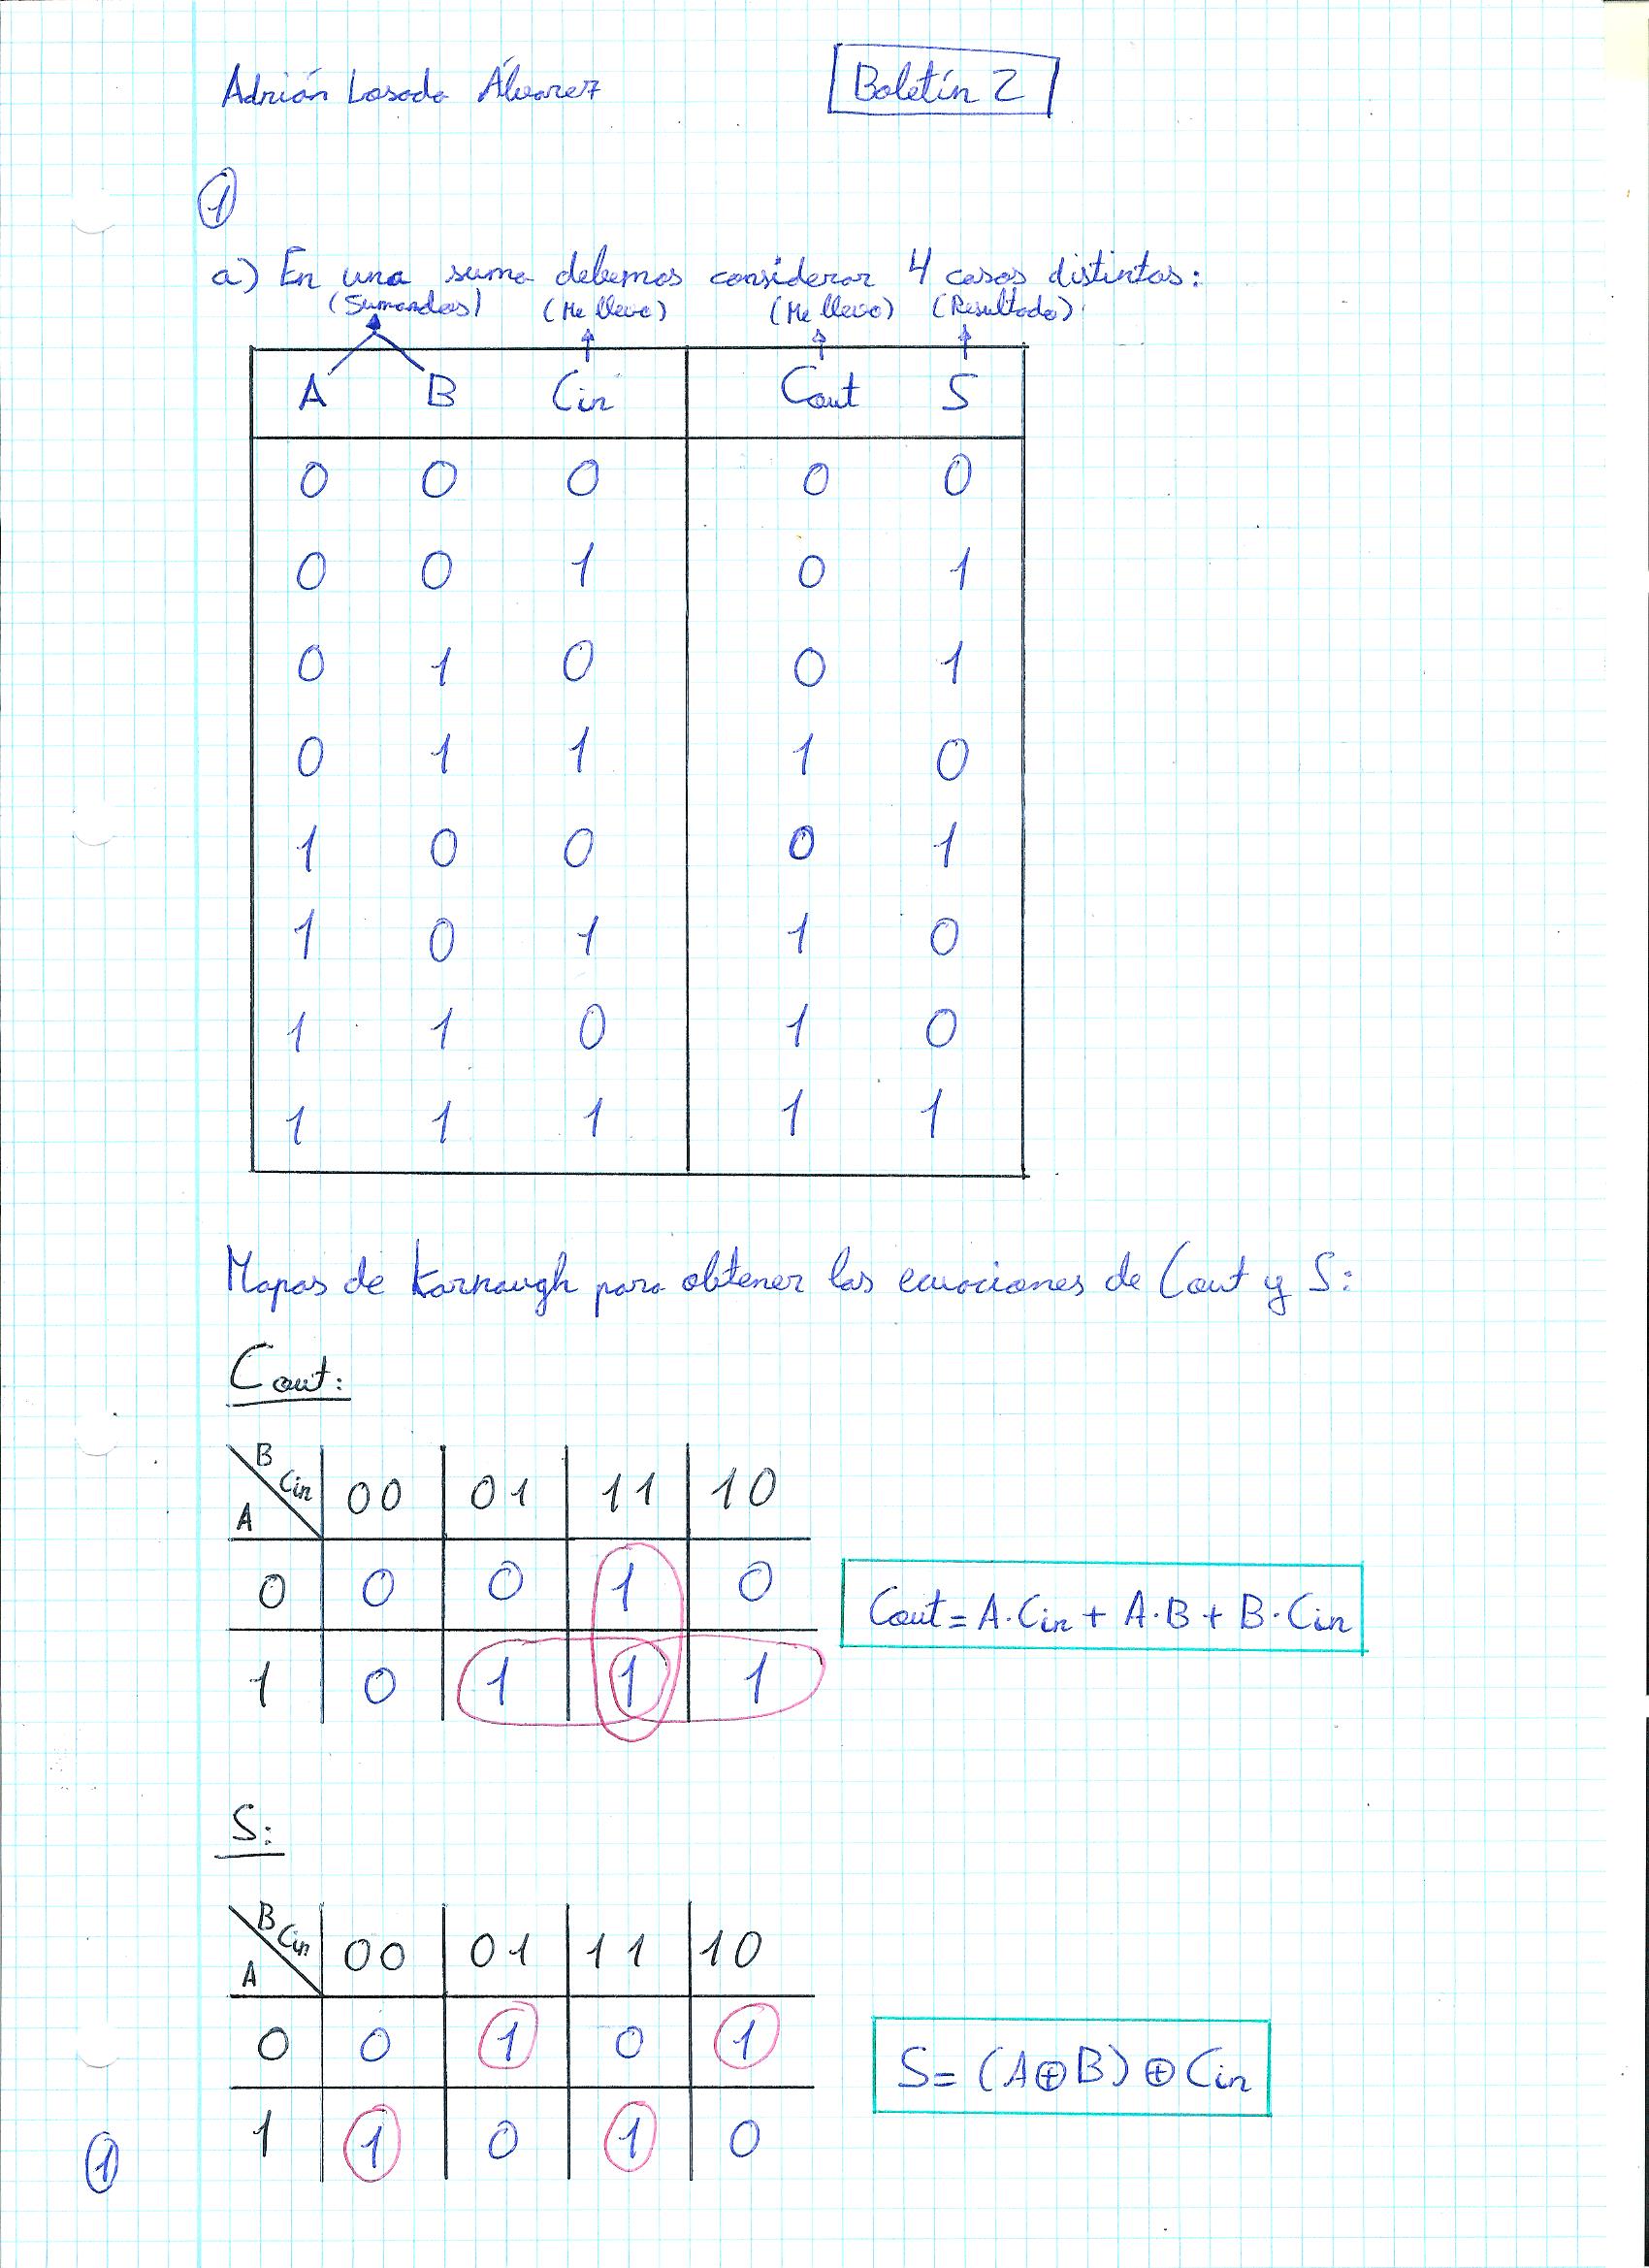 Adrián Losada Álvarez
Boletín 2
1
a) En una suma debemos considerar 4 casos distintos:
(Sumandos) (Me llevo) (Me llevo) (Resultado)
A B Cin Cout S
0 0 0 0 0
0 0 1 0 1
0 1 0 0 1
0 1 1 1 0
1 0 0 0 1
1 0 1 1 0
1 1 0 1 0
1 1 1 1 1
Mapas de Karnaugh para obtener las ecuaciones de Cout y S:
Cout:
B Cin A 00 01 11 10
0 0 0 1 0
1 0 1 1 1
Cout = A·Cin + A·B + B·Cin
S:
B Cin A 00 01 11 10
0 0 1 0 1
1 1 0 1 0
S = (A⊕B) ⊕ Cin
1